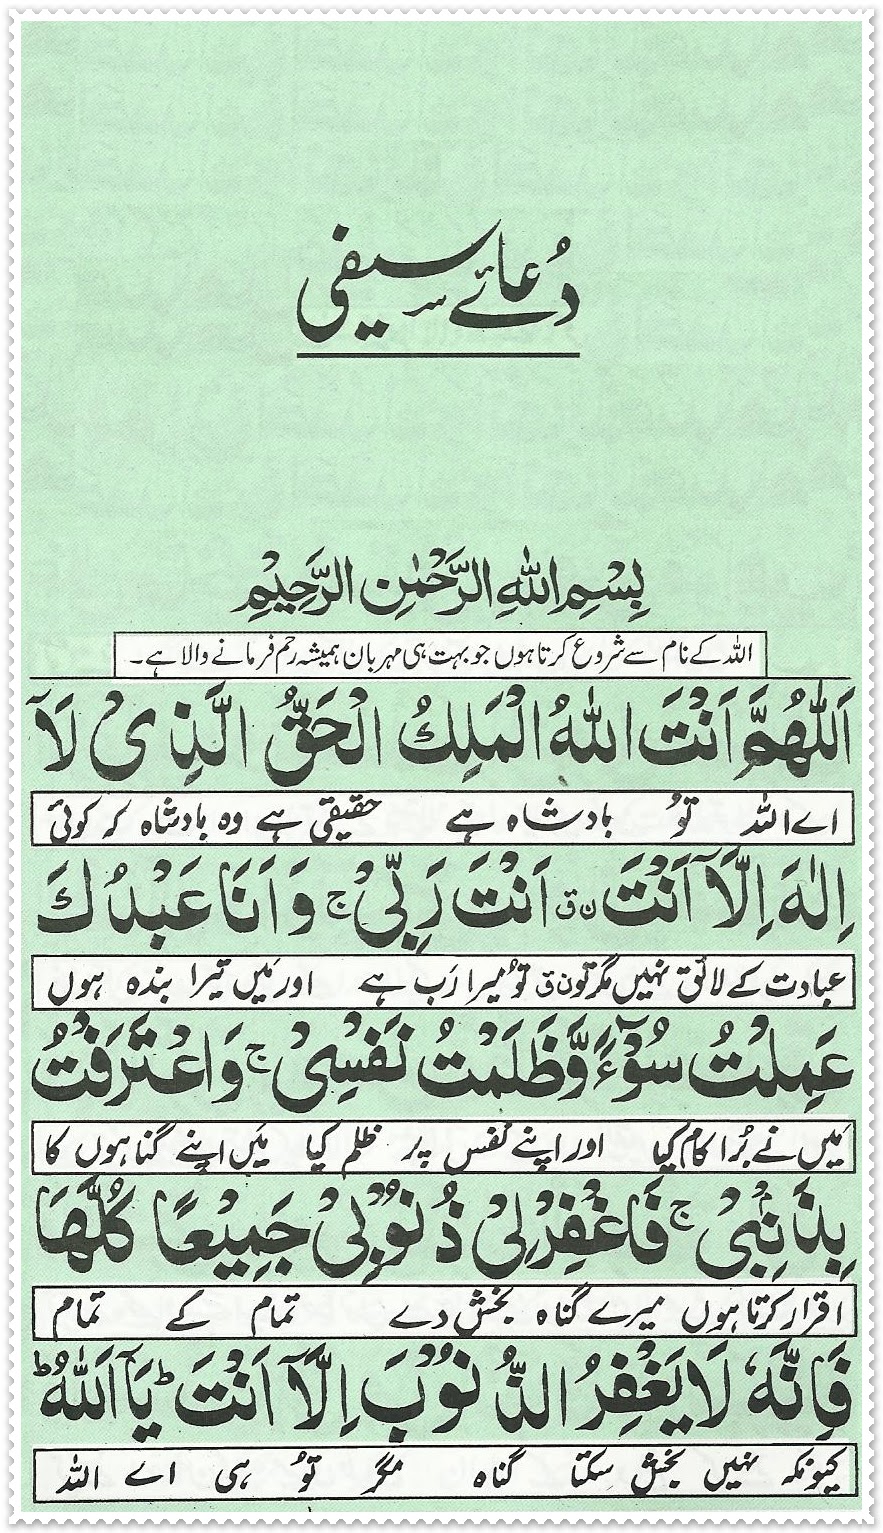 دُعائے سیفی
بِسْمِ اللهِ الرَّحْمٰنِ الرَّحِيْمِ
اللہ کے نام سے شروع کرتا ہوں جو بہت ہی مہربان ہمیشہ رحم فرمانے والا ہے۔
اَللّٰهُمَّ اَنْتَ اللهُ الْمَلِكُ الْحَقُّ الَّذِیْ لَآ
اے اللہ تُو بادشاہ ہے حقیقی ہے وہ بادشاہ کہ کوئی
اِلٰهَ اِلَّآ اَنْتَ ن ق اَنْتَ رَبِّیْ ج وَ اَنَا عَبْدُكَ
عبادت کے لائق نہیں مگر تو ن ق تُو میرا رَب ہے اور مَیں تیرا بندہ ہوں
عَمِلْتُ سُوْٓءً وَّظَلَمْتُ نَفْسِیْ ج وَاعْتَرَفْتُ
مَیں نے بُرا کام کیا اور اپنے نفس پر ظلم کیا مَیں اپنے گناہوں کا
بِذَنْبِیْ ج فَاغْفِرْلِیْ ذُنُوْبِیْ جَمِيْعًا كُلَّهَا
اقرار کرتا ہوں میرے گناہ بخش دے تمام کے تمام
فَاِنَّهٗ لَا يَغْفِرُ الذُّنُوْبَ اِلَّآ اَنْتَ ط يَآ اَللهُ ط
کیونکہ نہیں بخش سکتا گناہ مگر تُو ہی اے اللہ